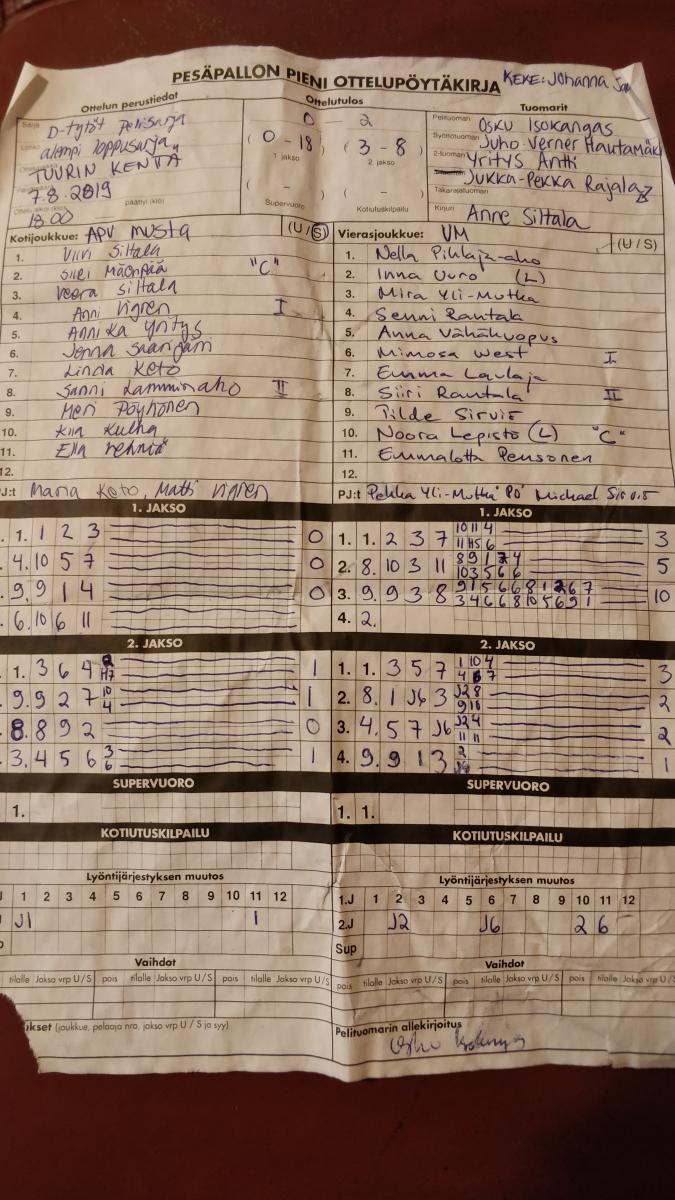 PESÄPALLON PIENI OTTELUPÖYTÄKIRJA KEKE: Johanna
Ottelun perustiedot Ottelutulos Tuomarit
D-tytöt Pelisarja 0 2 Pelituomari Osku Isokangas
alempi loppusarja (0 - 18) (3 - 8) Syöttötuomari Juho Verner Hautamäki
TUURIN KENTÄ 1 jakso 2 jakso 2-tuomari Yritys Antti
7.8.2019 ( - ) ( - ) Jukka-Pekka Rajala
18.00 päättyi (klo) Supervuoro Kotiutuskilpailu Takarajatuomari
Kirjuri Anne Siltala
Kotijoukkue: APV musta (U/S) Vierasjoukkue: VM (U/S)
1. Viivi Siltala 1. Nella Pihlaja-aho
2. Siiri Mäenpää "C" 2. Inna Uuro (L)
3. Veera Siltala 3. Mira Yli-Mutka
4. Anni Vigren I 4. Senni Rantala
5. Annika Yritys 5. Anna Vähäkuopus
6. Jenna Saarijärvi 6. Mimosa West I
7. Linda Keto 7. Emma Laulaja
8. Sanni Lamminaho II 8. Siiri Rautala II
9. Meri Pöyhönen 9. Tilde Sirviö
10. Kiia Kulha 10. Noora Lepistö (L) "C"
11. Ella 11. Emmalotta Pensonen
12. 12.
PJ:t Maria Keto, Matti Vigren PJ:t Pekka Yli-Mutka Michael Sirviö
1. JAKSO 1. JAKSO
1. 1 2 3 0 1. 1. 2 3 7 10 11 4 3
4. 10 5 7 0 2. 8. 10 3 11 5
9. 9 1 4 0 3. 9. 9 3 8 10
6. 10 6 11 4. 2.
2. JAKSO 2. JAKSO
1. 3 6 4 1 1. 1. 3 5 7 1 10 4 3
9. 9 2 7 10 4 1 2. 8. 1 J6 3 J2 8 2
8. 8 9 2 0 3. 4. 5 7 J6 J2 4 11 11 2
3. 4 5 6 3 6 1 4. 9. 9 1 3 2 1
SUPERVUORO SUPERVUORO
1. 1. 1.
KOTIUTUSKILPAILU KOTIUTUSKILPAILU
Lyöntijärjestyksen muutos Lyöntijärjestyksen muutos
1 2 3 4 5 6 7 8 9 10 11 12 1.J 1 2 3 4 5 6 7 8 9 10 11 12
J1 1 2.J J2 J6 2 6
Sup
Vaihdot Vaihdot
tilalle Jakso vrp U/S pois tilalle Jakso vrp U/S pois tilalle Jakso vrp U/S pois tilalle Jakso vrp U/S pois tilalle Jakso vrp U/S pois tilalle Jakso vrp U/S
(joukkue, pelaaja nro, jakso vrp U / S ja syy) Pelituomarin allekirjoitus